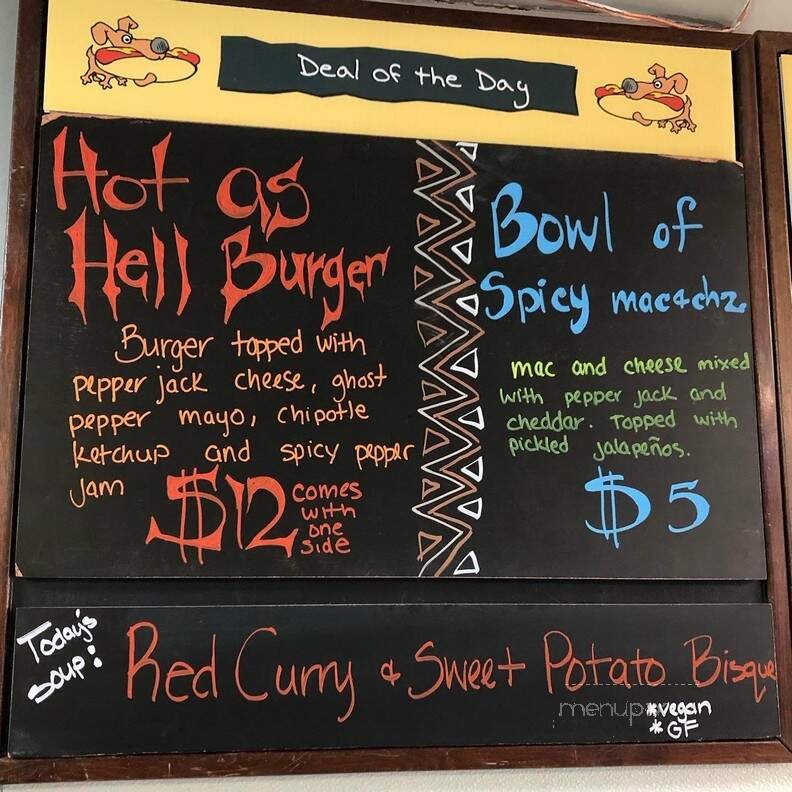 Deal of the Day
Hot as
Hell Burger
Burger topped with
pepper jack cheese, ghost
pepper mayo, chipotle
ketchup and spicy pepper
jam
$12 comes
with
one
side
Bowl of
Spicy mac&chz
mac and cheese mixed
with pepper jack and
cheddar. Topped with
pickled jalapeños.
$5
Today's
soup:
Red Curry & Sweet Potato Bisque
*vegan
*GF
menup